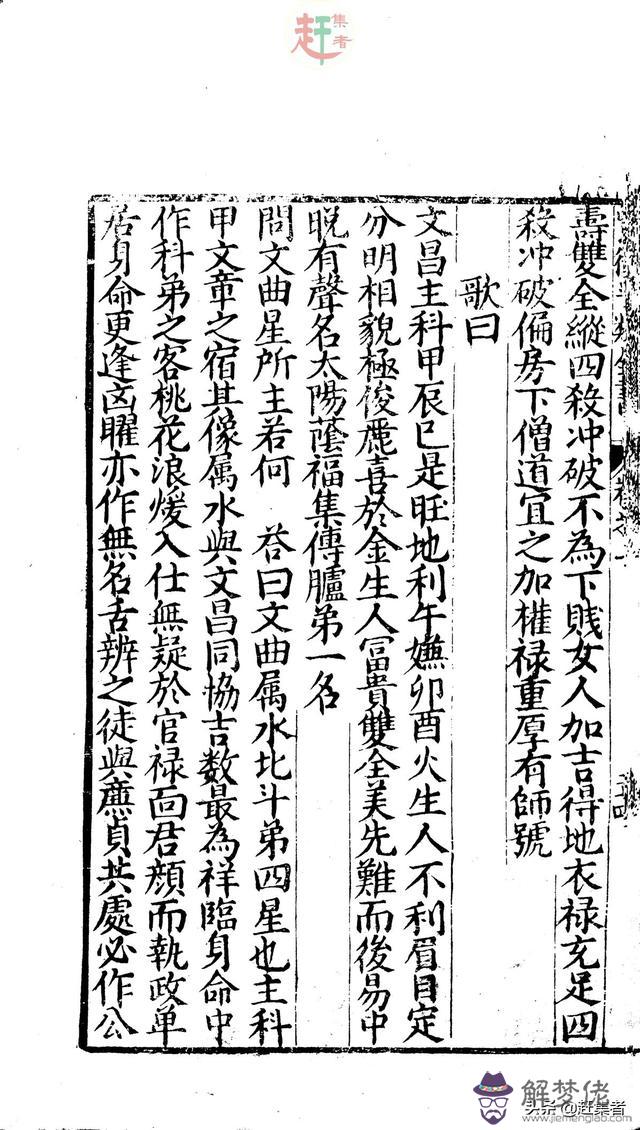 赶集者
壽雙全縱四殺冲破不為下賤女人加吉得地衣禄充足四
殺冲破偏房下僧道宜之加權禄重厚有師號
歌曰
文昌主科甲辰巳是旺地利午嫌卯酉火生人不利眉目定
分明相貌極俊麗喜於金生人冨貴雙全美先難而後易中
晚有聲名太陽蔭福集傳臚弟一名
問文曲星所主若何　荅曰文曲属水北斗弟四星也主科
甲文章之宿其像属水與文昌同協吉数最為祥臨身命中
作科弟之客桃花浪煖入仕無疑於官禄靣君顔而執政单
居身命更逢凶曜亦作無名舌辨之徒與㢘貞共處必作公
头条@赶集者
解梦佬
www.jiemenglab.com